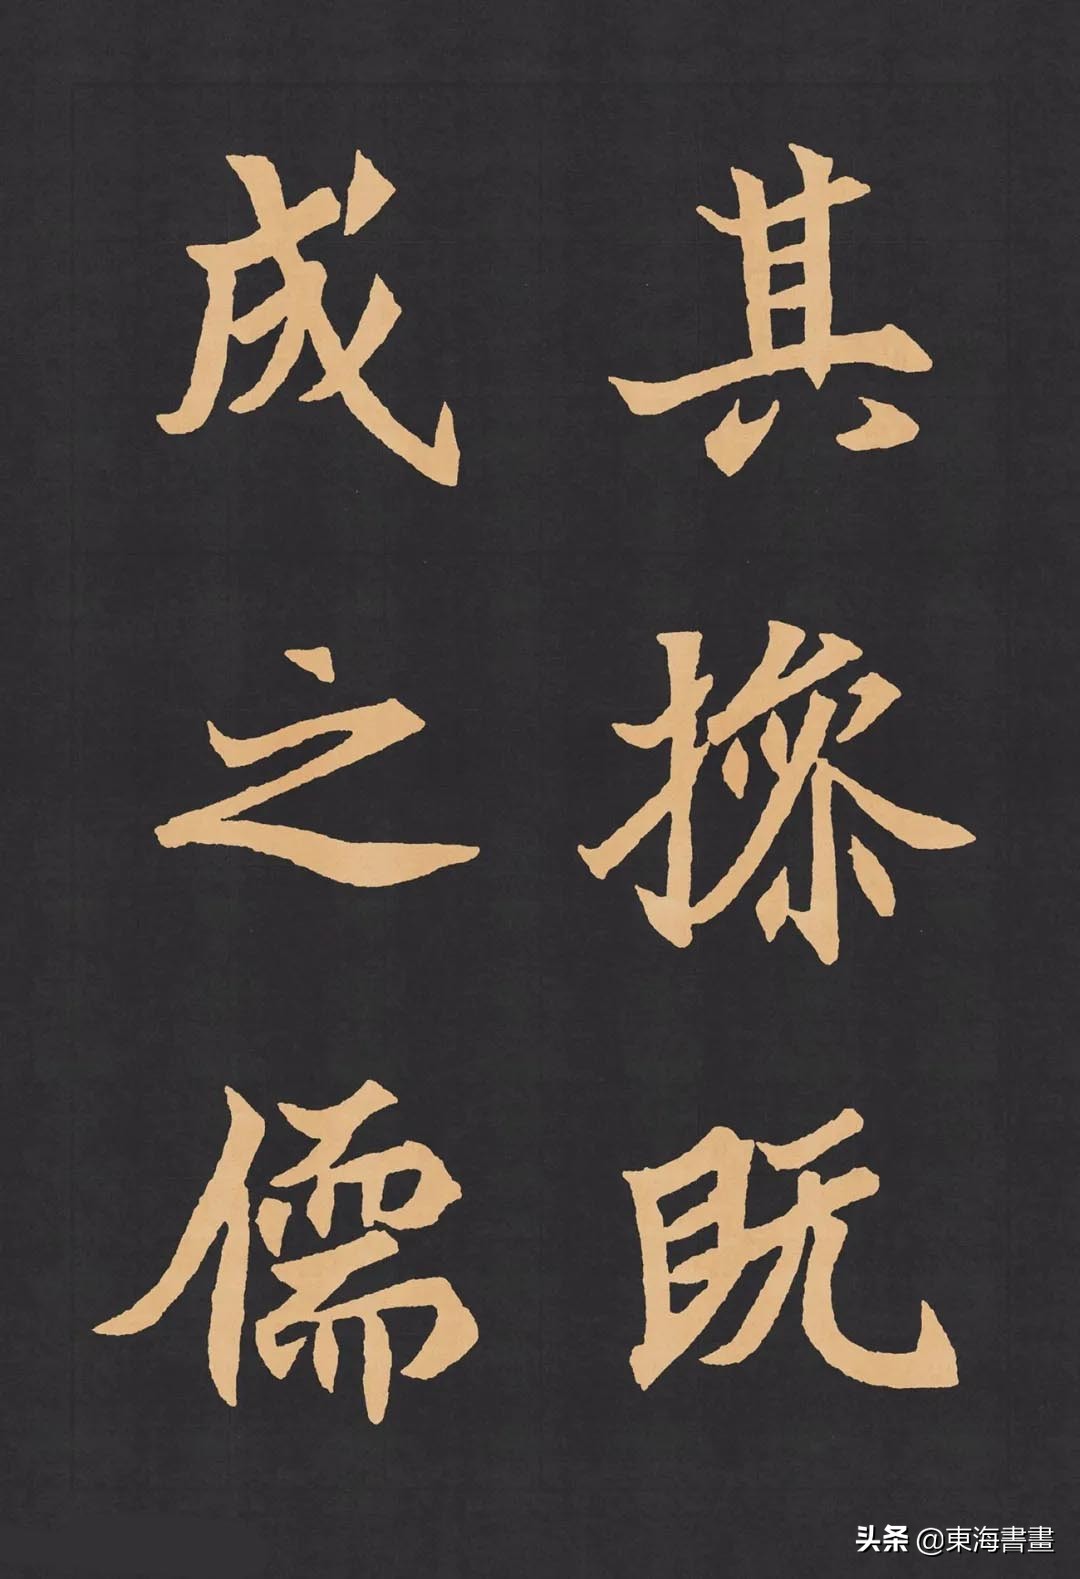 其㧰既
成之儒
头条 @東海書畫